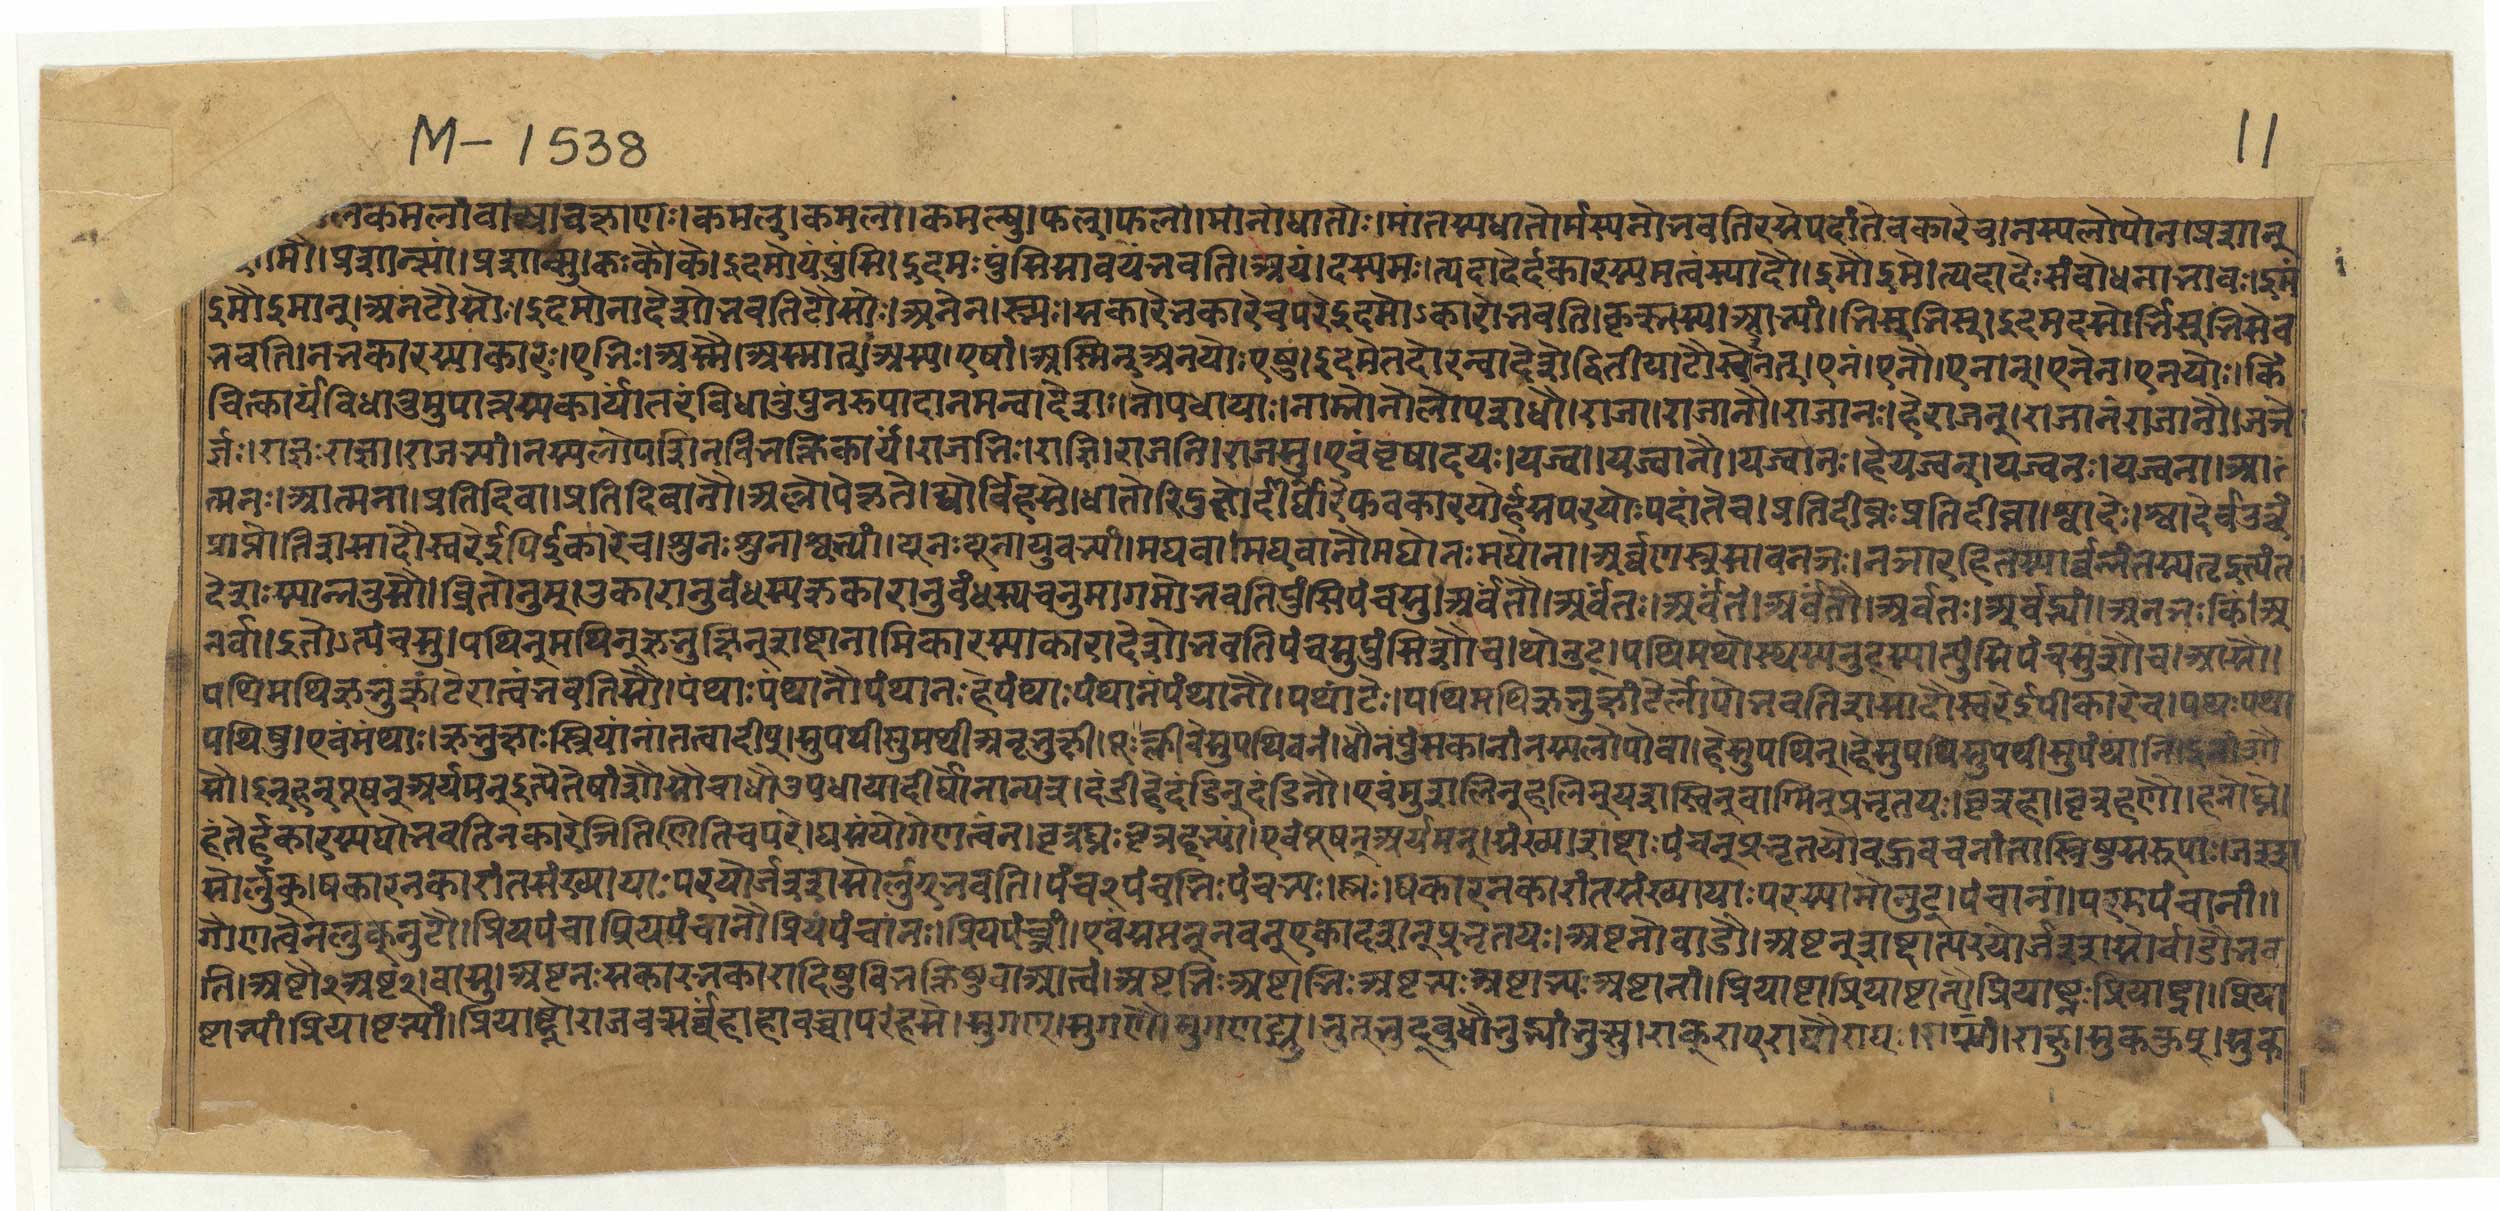 M-1538
11
कमलांवाव्या।वक्राणः।कमल्।कमलौ।कमल्षु।फल्।फलौ।मोनोधातोः।मांतस्यधातोर्मस्यनोभवतिरसेपदांतेवकारेच।नस्यलोपोन।प्रशान्
मौ।प्रशान्भ्यां।प्रशान्सु।कःकौके।इदमोयंपुंसि।इदमःपुंसिसावयंभवति।अयं।दस्यमः।त्यदादेर्दकारस्यमत्वंस्यादौ।इमौइमे।त्यदादेःसंबोधनाभावः।इमं
इमौइमान्।अनटौसोः।इदमोनादेशोभवतिटौसोः।अनेन।स्भ्यः।सकारेभकारेचपरेइदमोऽकारोभवति।कृत्स्नस्य।आभ्यां।भिस्भिस्।इदमदसोर्भिस्भिसेव
भवति।नभकारस्याकारः।एभिः।अस्मै।अस्मात्।अस्य।एषां।अस्मिन्अनयोःएषु।इदमेतदोरन्वादेशेद्वितीयाटौस्स्वेनत्।एनं।एनौ।एनान्।एनेन।एनयोः।किं
चित्कार्यंविधातुमुपात्तस्यकार्यांतरंविधातुंपुनरुपादानमन्वादेशः।नोपधायाः।नाम्नोनोलोपशधौ।राजा।राजानौ।राजानः।हेराजन्।राजानंराजानौ।जञो
र्ज्ञः।राज्ञःराज्ञा।राजभ्यां।नस्यलोपशिनविभक्तिकार्यं।राजभिः।राज्ञि।राजनि।राजसु।एवंवृषादयः।यज्वा।यज्वानौ।यज्वानः।हेयज्वन्।यज्वनः।यज्वना।आ
त्मनः।आत्मना।प्रतिदिवा।प्रतिदिवानौ।अल्लोपेकृते।य्वोर्विहसे।धातोरिदुतोर्दीर्घोरेफवकारयोर्हसपरयोःपदांतेच।प्रतिदीव्नःप्रतिदीव्ना।श्वादेः।श्वादेर्वउत्वं
प्राप्नोतिशसादौस्वरेईपिईकारेच।शुनःशुना।श्वभ्यां।यूनःयूना।युवभ्यां।मघवा।मघवानौमघोनःमघोना।अर्व्वणस्त्रसावनञः।नञारहितस्यार्व्वन्नंतस्यतृइत्यंत
देशःस्यान्नतुसौ।व्रितोनुम्।उकारानुबंधस्यऋकारानुबंधस्यचनुमागमोभवतिपुंसिपंचसु।अर्वंतौ।अर्वंतः।अर्वंतं।अर्वंतौ।अर्वतः।अर्वद्भ्यां।अनञःकिं।अ
नर्वा।इतोऽत्पंचसु।पथिन्मथिन्ऋभुक्षिन्शब्दानामिकारस्याकारादेशोभवतिपंचसुपुंसिशौच।थोनुट्।पथिमथोस्थस्यनुट्स्यात्पुंसिपंचसुशौच।आसौ।
पथिमथिऋभुक्षांटेरात्वंभवतिसौ।पंथाःपंथानौपंथानःहेपंथाःपंथानंपंथानौ।पथांटेः।पथिमथिऋभुक्षांटेर्लोपोभवतिशसादौस्वरेईपीकारेच।पथःपथा
पथिषु।एवंमंथाः।ऋभुक्षाःस्त्रियांनांतत्वादीप्।सुपथीसुमथीअनृभुक्षी।क्लीबेसुपथिवनं।धौनपुंसकानांनस्यलोपोवा।हेसुपथिन्।हेसुपथिसुपथीसुपंथानि।इनांशौ
सौ।इन्हन्पूषन्अर्यमन्इत्येतेषांशौसौचाधौउपधायादीर्घोनान्यत्र।दंडीहेदंडिन्दंडिनौ।एवंसुशालिन्हलिन्यशस्विन्वाग्मिन्प्रभृतयः।वृत्रहा।वृत्रहणौ।हनोघ्ने।
हंतेर्हकारस्यघोभवतिनकारेञितिणितिचपरे।घसंयोगेणत्वंन।वृत्रघ्नःवृत्रहभ्यां।एवंपूषन्अर्यमन्।संख्याशब्दाःपंचन्प्रभृतयोबहुवचनांतास्त्रिषुसरूपाः।जश्श
सोर्लुक्।षकारनकारांतसंख्यायाःपरयोर्जश्शसोर्लुग्भवति।पंच२पंचभिःपंचभ्यः।ष्णः।षकारनकारांतसंख्यायाःपरस्यामोनुट्।पंचानां।परमपंचानां॥
गौणत्वेनलुक्नुटौ।प्रियपंचाप्रियपंचानौप्रियपंचानः।प्रियपंच्ञां।एवंसप्तन्नवन्एकादशन्प्रभृतयः।अष्टनोवाडौ।अष्टन्शब्दात्परयोर्जश्शसोर्वाडौभव
ति।अष्टौ२अष्ट२।वासु।अष्टनःसकारभकारादिषुविभक्तिषुवाआत्वं।अष्टभिःअष्टाभिःअष्टभ्यःअष्टाभ्यःअष्टानां।प्रियाष्टाप्रियाष्टानौप्रियाष्ट्नःप्रियाष्ट्ना।प्रिया
ष्टाभ्यां।प्रियाष्टभ्यां।प्रियाष्ट्नोराजवत्सर्व्वंहाहावच्चापरंहसे।सुगण्।सुगणौ।सुगण्ट्सु।भुत्भुद्बुधौभुद्भ्यांभुत्सु।राक्राग्राघौराघः।राग्भ्यां।राक्षु।सुककुप्।सुक